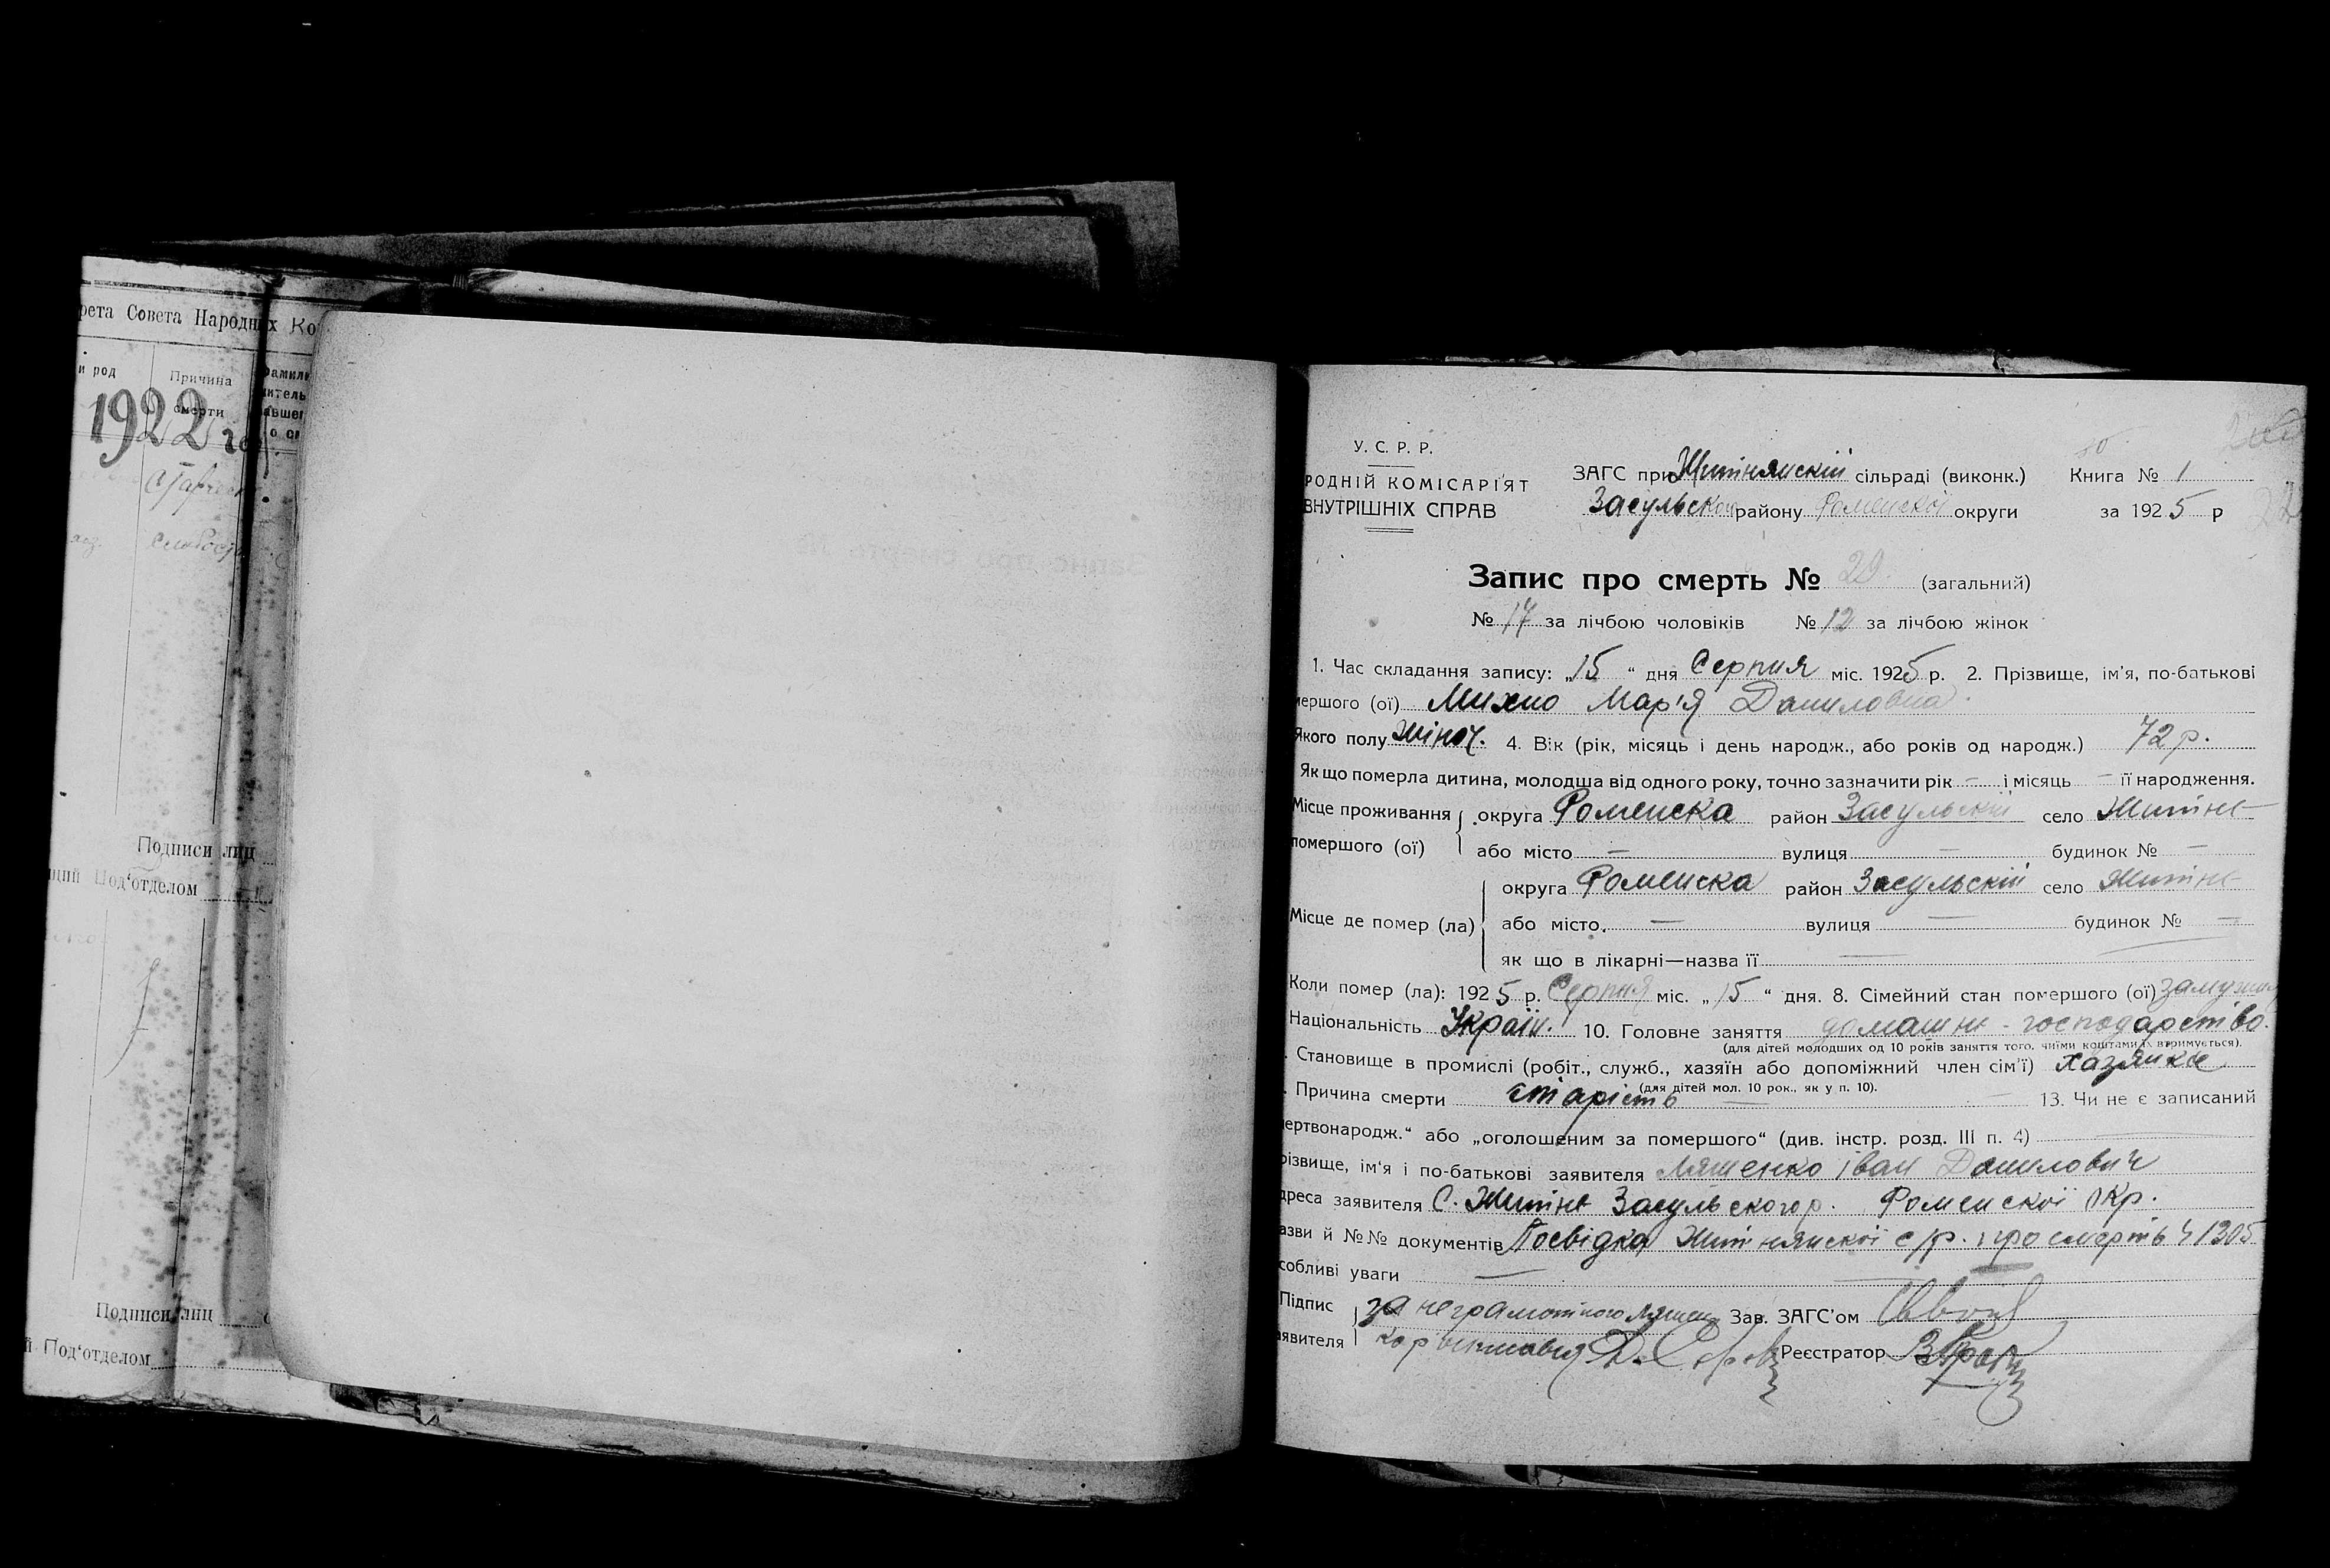 рета Совета Народных Ко
и род
Причина
смерти
1922 го
Подписи лиц
щий Под'отделом
Подписи лиц
й Под'отделом
У. С. Р. Р.
РОДНІЙ КОМІСАРІЯТ
ВНУТРІШНІХ СПРАВ
ЗАГС при Житнянскій сільраді (виконк.) Книга № 1
Засульскои району Роменскої округи за 1925 р
Запис про смерть № 29 (загальний)
№ 17 за лічбою чоловіків № 12 за лічбою жінок
1. Час складання запису: „15 “ дня Серпня міс. 1925 р. 2. Прізвище, ім'я, по-батькові
мершого (ої) Михно Мар'я Даниловна.
Якого полу жіноч. 4. Вік (рік, місяць і день народж., або років од народж.) 72 р.
Як що померла дитина, молодша від одного року, точно зазначити рік — і місяць — її народження.
Місце проживання округа Роменска район Засульскій село Житне
помершого (ої) або місто — вулиця — будинок № —
округа Роменска район Засульскій село Житне
Місце де помер (ла) або місто. — вулиця — будинок № —
як що в лікарні—назва її —
Коли помер (ла): 1925 р. Серпня міс. „ 15 “ дня. 8. Сімейний стан помершого (ої)
Національність Україн. 10. Головне заняття домашне - господарство.
(для дітей молодших од 10 років заняття того, чиїми коштами їх втримується).
. Становище в промислі (робіт., служб., хазяїн або допоміжний член сім'ї) хазяйка
(для дітей мол. 10 рок., як у п. 10).
. Причина смерти старість — 13. Чи не є записаний
ертвонародж.“ або „оголошеним за помершого“ (див. інстр. розд. III п. 4) —
різвище, ім'я і по-батькові заявителя Ляшенко Іван Данилович
дреса заявителя С. Житне Засульского р. Роменскої окр.
азви й №№ документів Посвідка Житнянскої с/р. про смерть Ч 1305
собливі уваги —
Підпис за неграмотного Зав. ЗАГС'ом
аявителя Реєстратор